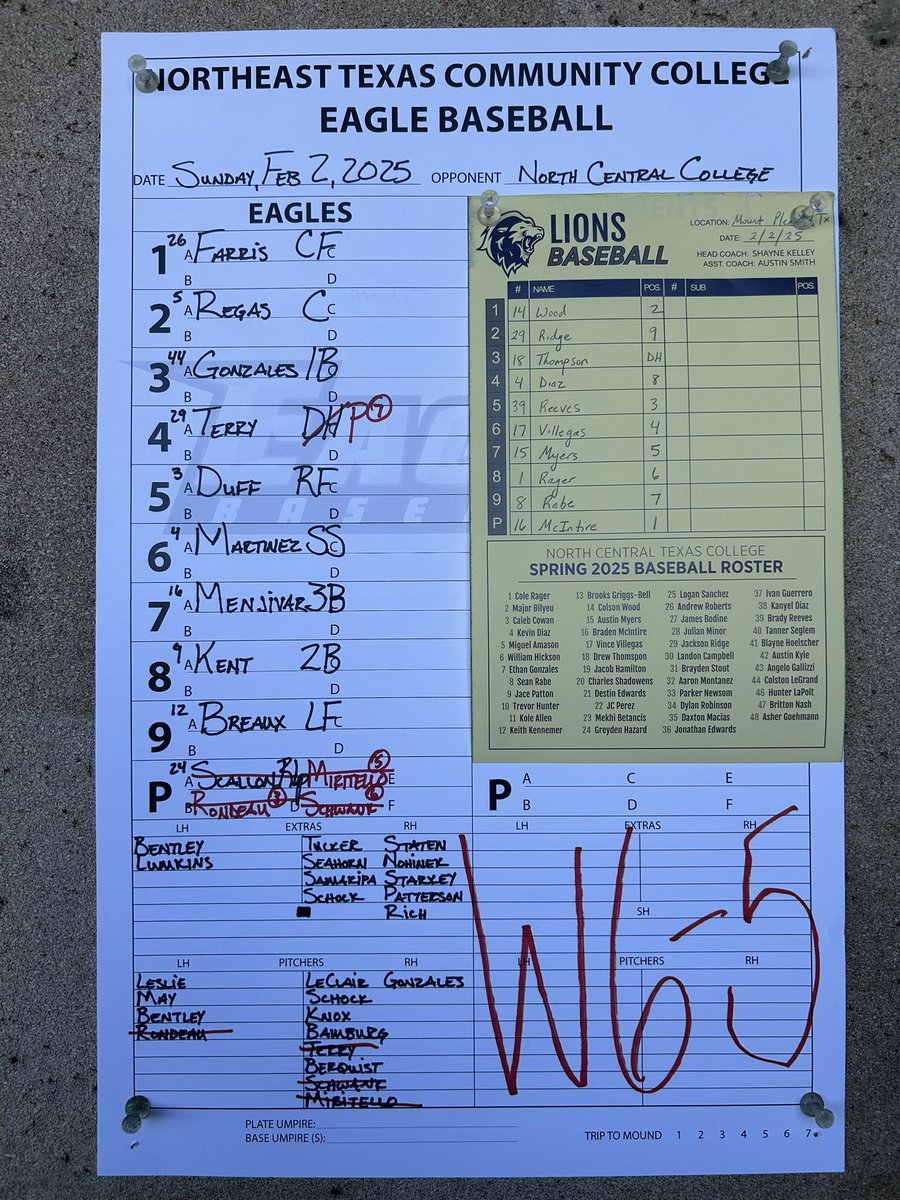 NORTHEAST TEXAS COMMUNITY COLLEGE
EAGLE BASEBALL
DATE SUNDAY, FEB 2, 2025 OPPONENT NORTH CENTRAL COLLEGE
EAGLES
1 26 A FARRIS CF C
B D
2 5 A REGAS C C
B D
3 44 A GONZALES 1B
B D
4 29 A TERRY DH P 7
B D
5 3 A DUFF RF C
B D
6 4 A MARTINEZ SS C
B D
7 16 A MENJIVAR 3B
B D
8 9 A KENT 2B
B D
9 12 A BREAUX LF C
B D
P 24 A SCALLON RHP MIRITELLO 5 E
B RONDEAU 3 D SCHWANK 6 F
LH EXTRAS RH
BENTLEY TUCKER STATEN
LUMKINS SEAHORN NOHINER
SAMARIPA STARKEY
SCHOCK PATTERSON
RICH
LH PITCHERS RH
LESLIE LECLAIR GONZALES
MAY SCHOCK
BENTLEY KNOX
RONDEAU BAMBURG
TERRY
BERQUIST
SCHWANK
MIRITELLO
LIONS
BASEBALL
LOCATION: Mount Tx
DATE: 2/2/25
HEAD COACH: SHAYNE KELLEY
ASST. COACH: AUSTIN SMITH
# NAME POS. # SUB POS.
1 14 Wood 2
2 29 Ridge 9
3 18 Thompson DH
4 4 Diaz 8
5 39 Reeves 3
6 17 Villegas 4
7 15 Myers 5
8 1 Rager 6
9 8 Rabe 7
P 16 McIntire 1
NORTH CENTRAL TEXAS COLLEGE
SPRING 2025 BASEBALL ROSTER
1 Cole Rager
2 Major Bilyeu
3 Caleb Cowan
4 Kevin Diaz
5 Miguel Amason
6 William Hickson
7 Ethan Gonzales
8 Sean Rabe
9 Jace Patton
10 Trevor Hunter
11 Kole Allen
12 Keith Kennemer
13 Brooks Griggs-Bell
14 Colson Wood
15 Austin Myers
16 Braden McIntire
17 Vince Villegas
18 Drew Thomspon
19 Jacob Hamilton
20 Charles Shadowens
21 Destin Edwards
22 JC Perez
23 Mekhi Betancis
24 Greyden Hazard
25 Logan Sanchez
26 Andrew Roberts
27 James Bodine
28 Julian Minor
29 Jackson Ridge
30 Landon Campbell
31 Brayden Stout
32 Aaron Montanez
33 Parker Newsom
34 Dylan Robinson
35 Daxton Macias
36 Jonathan Edwards
37 Ivan Guerrero
38 Kanyel Diaz
39 Brady Reeves
40 Tanner Seglem
41 Blayne Hoelscher
42 Austin Kyle
43 Angelo Gallizzi
44 Colston LeGrand
46 Hunter LaPolt
47 Britton Nash
48 Asher Goehmann
P A C E
B D F
LH EXTRAS RH
SH
LH PITCHERS RH
W 6-5
PLATE UMPIRE:
BASE UMPIRE (S):
TRIP TO MOUND 1 2 3 4 5 6 7